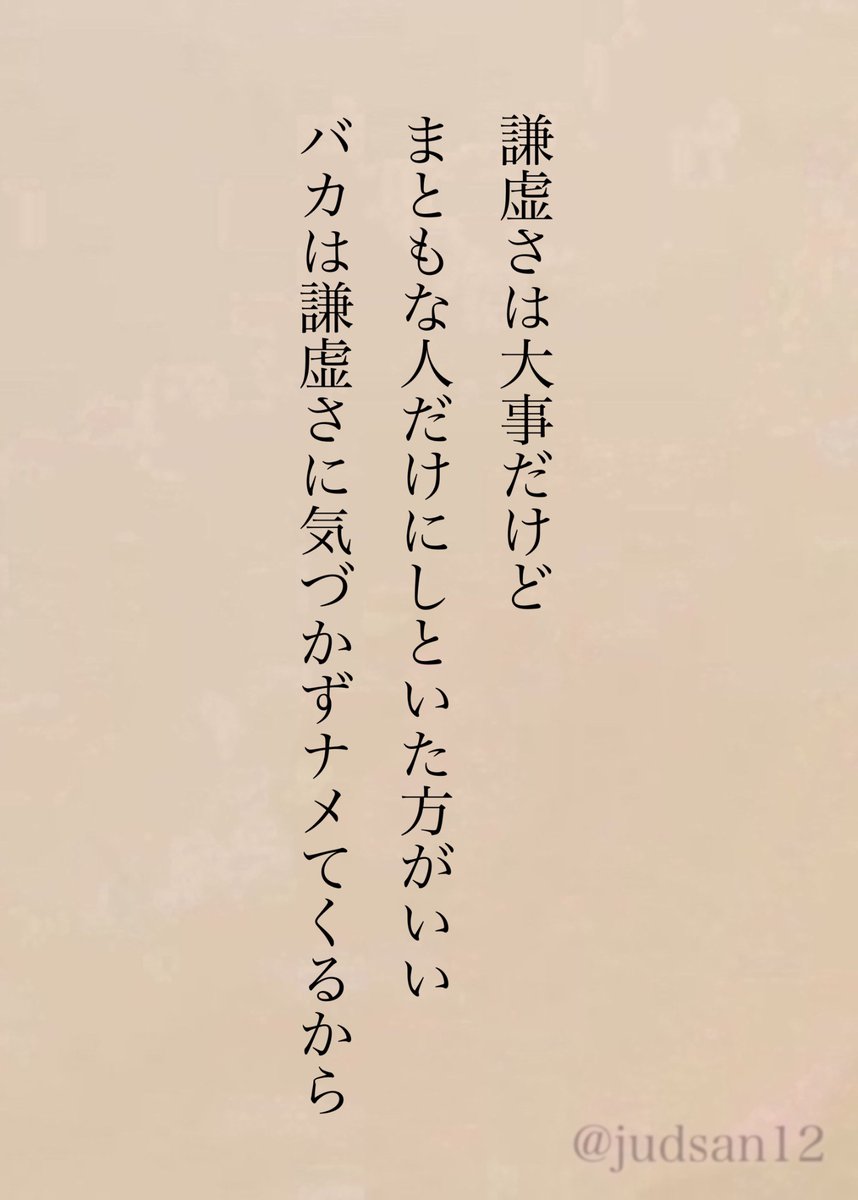 謙虚さは大事だけど
まともな人だけにしといた方がいい
バカは謙虚さに気づかずナメてくるから
@judsan12